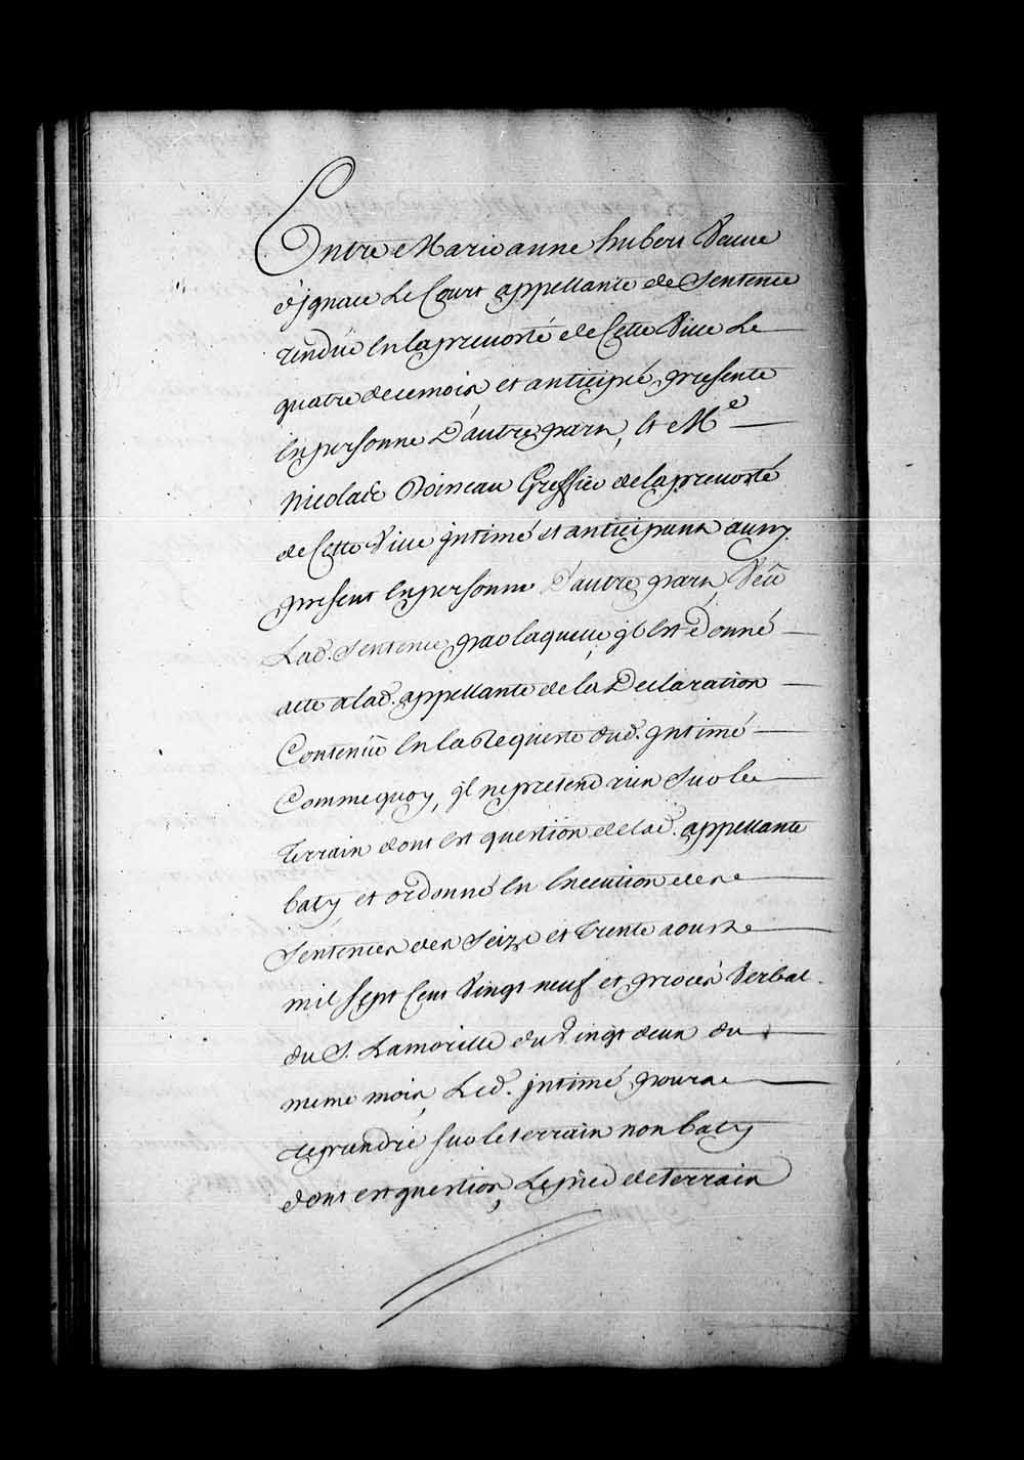 Entre Marie anne hubert Veuve
d'jgnace Le Court appellante de Sentence
rendüe En la prevosté de Cette Ville Le
quatre de ce mois, et anticipée, presente
En personne D'autre part, Et Me
Nicolas Boineau Greffier de la prevosté
de Cette Ville jntimé et anticipant aussy
present En personne D'autre part, Veu
Lad. Sentence par laquelle jl Est donné
acte a lad. appellante de la Declaration
Contenüe En la Requeste dud. jntimé
Comme quoy, jl ne pretend rien Sur le
terrain dont Est question de lad. appellante
baty et ordonné En Execution des
Sentences des Seize et trente aoust
mil Sept Cent Vingt neuf et procés Verbal
du S. Lamorille du Vingt deux du
meme mois, Led. jntimé, pour
reprendre sur le terrain non baty
dont est question, Le pied de terrain